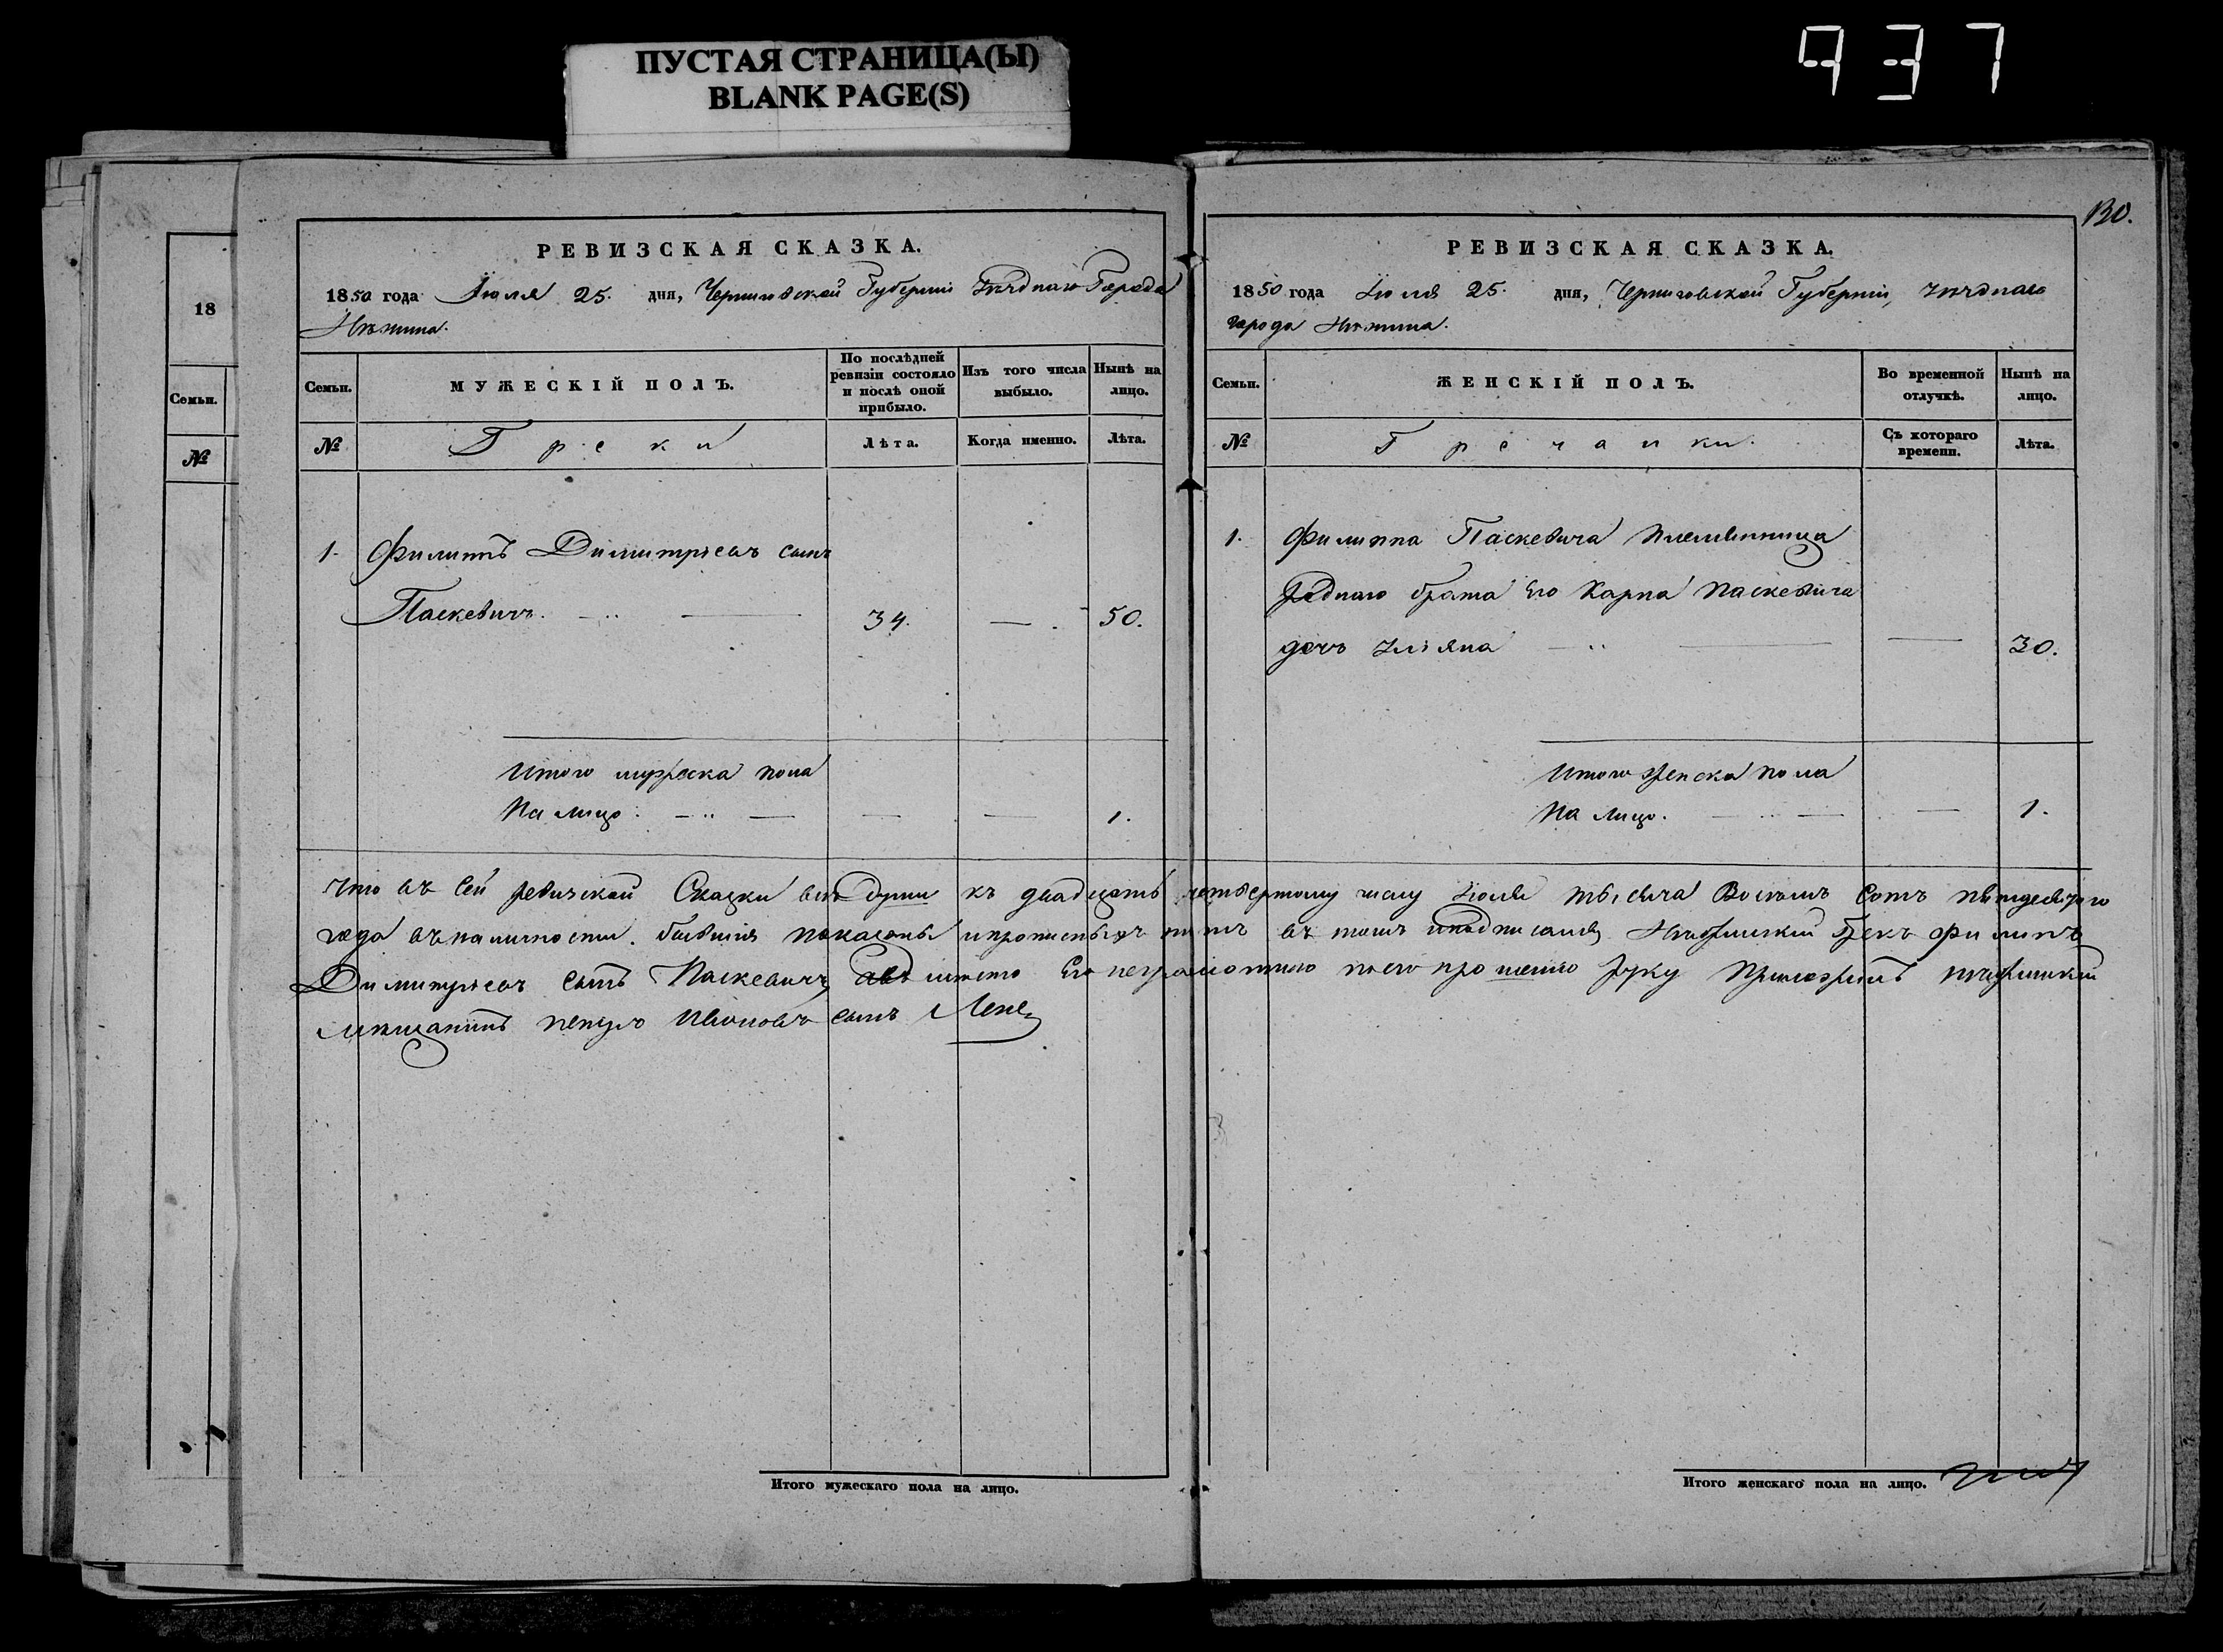 ПУСТАЯ СТРАНИЦА(Ы)
BLANK PAGE(S)
937
18
Семьи.
№
РЕВИЗСКАЯ СКАЗКА.
1850 года Іюля 25. дня, Черниговской Губерніи уѣзднаго Города
Нѣжина.
Семьи.
МУЖЕСКІЙ ПОЛЪ.
По послѣдней ревизіи состояло и послѣ оной прибыло.
Изъ того числа выбыло.
Нынѣ на лицо.
№
Греки
Лѣта.
Когда именно.
Лѣта.
1. Филиппъ Димитріевъ сынъ
Паскевичъ. 34. — 50.
Итого мужеска пола
на лицо. — — — 1.
130.
РЕВИЗСКАЯ СКАЗКА.
1850 года Іюля 25. дня, Черниговской Губерніи, уѣзднаго
города Нѣжина.
Семьи.
ЖЕНСКІЙ ПОЛЪ.
Во временной отлучкѣ.
Нынѣ на лицо.
№
Гречанки.
Съ котораго времени.
Лѣта.
1. Филиппа Паскевича племянница
роднаго брата его Карпа Паскевича
дочь Уліяна — — 30.
Итого женска пола
на лицо. — — 1.
Что въ сей ревизской Сказки всѣ души къ двадцать четвертому числу Іюля тысяча Восемъ сотъ пятдесятаго
года въ наличности бывшія показаны и прописныхъ нѣтъ въ томъ и подписался Нѣжинскій Грекъ Филипъ
Димитріевъ сынъ Паскевичъ, а вмѣсто Его неграмотнаго по его прошенію руку приложилъ нѣжинскій
мѣщанинъ Ивановъ сынъ
Итого мужескаго пола на лицо.
Итого женскаго пола на лицо.